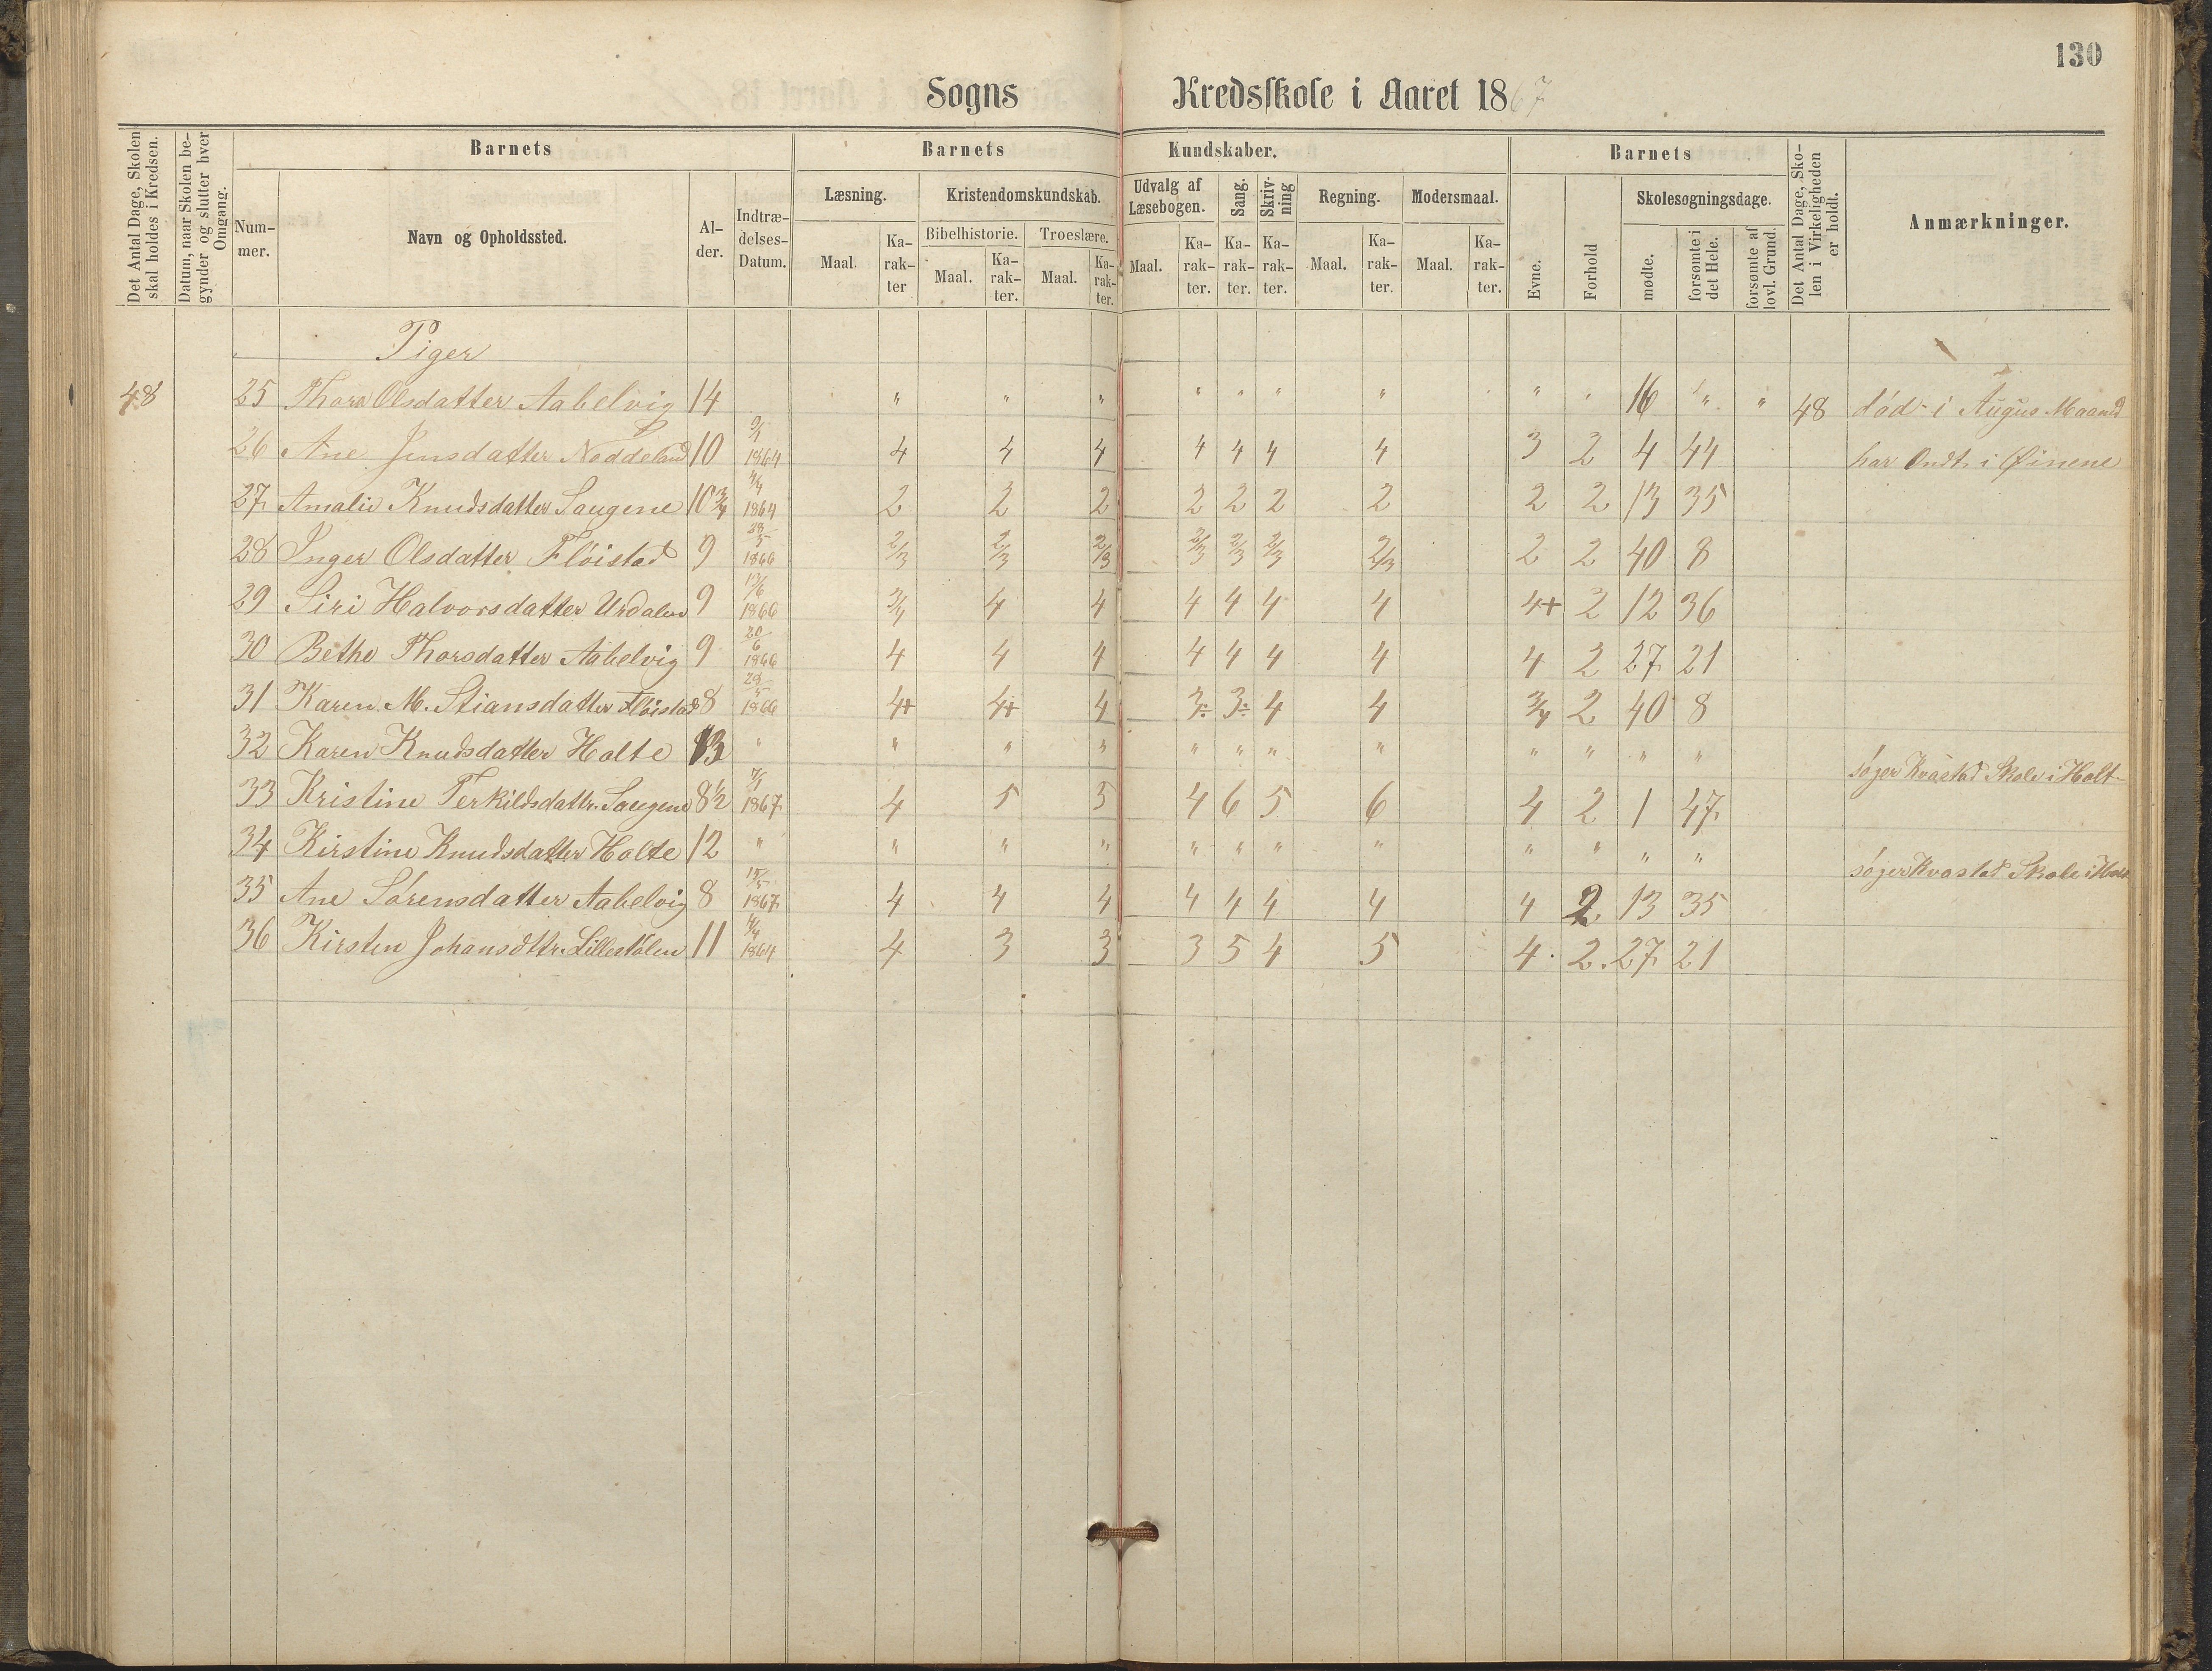 130
Sogns Kredsskole i Aaret 1867
Det Antal Dage, Skolen skal holdes i Kredsen.
Datum, naar Skolen begynder og slutter hver Omgang.
Barnets
Nummer.
Navn og Opholdssted.
Alder.
Indtrædelses-Datum.
Barnets Kundskaber.
Læsning.
Maal.
Karakter
Kristendomskundskab.
Bibelhistorie.
Maal.
Karakter.
Troeslære.
Maal.
Karakter.
Udvalg af Læsebogen.
Maal.
Karakter.
Sang.
Karakter.
Skrivning
Karakter.
Regning.
Maal.
Karakter.
Modersmaal.
Maal.
Karakter.
Barnets
Evne.
Forhold
Skolesøgningsdage.
mødte.
forsømte i det Hele.
forsømte af lovl. Grund.
Det Antal Dage, Skolen i Virkeligheden er holdt.
Anmærkninger.
Piger
48 25 Thora Olsdatter Aabelvig 14 " " " " " " " " " 16 " " 48 død i Augus Maaned
26 Ane Jensdatter Noddeland 10 9/1 1864 4 4 4 4 4 4 4 3 2 4 44 har Ondt i Øinene
27 Amalie Knudsdatter Saugene 10 3/4 4/4 1864 2 2 2 2 2 2 2 2 2 13 35
28 Inger Olsdatter Fløistad 9 28/5 1866 2/3 2/3 2/3 2/3 2/3 2/3 2/3 2 2 40 8
29 Siri Halvorsdatter Urdalen 9 13/6 1866 3/4 4 4 4 4 4 4 4+ 2 12 36
30 Bethe Thorsdatter Aabelvig 9 20/6 1866 4 4 4 4 4 4 4 4 2 27 21
31 Karen M. Stiansdatter Fløistad 8 28/5 1866 4+ 4+ 4 3÷ 3÷ 4 4 3/4 2 40 8
32 Karen Knudsdatter Holte 13 " " " " " " " " " " " " søger Kvastad Skole i Holt
33 Kristine Terkildsdattr. Saugene 8 1/2 7/1 1867 4 5 5 4 6 5 6 4 2 1 47
34 Kirstine Knudsdatter Holte 12 " " " " " " " " " " " " søger Kvastad Skole i Holt
35 Ane Sørensdatter Aabelvig 8 15/5 1867 4 4 4 4 4 4 4 4 2 13 35
36 Kirsten Johansdttr. Lillestølen 11 4/4 1864 4 3 3 3 5 4 5 4 2 27 21